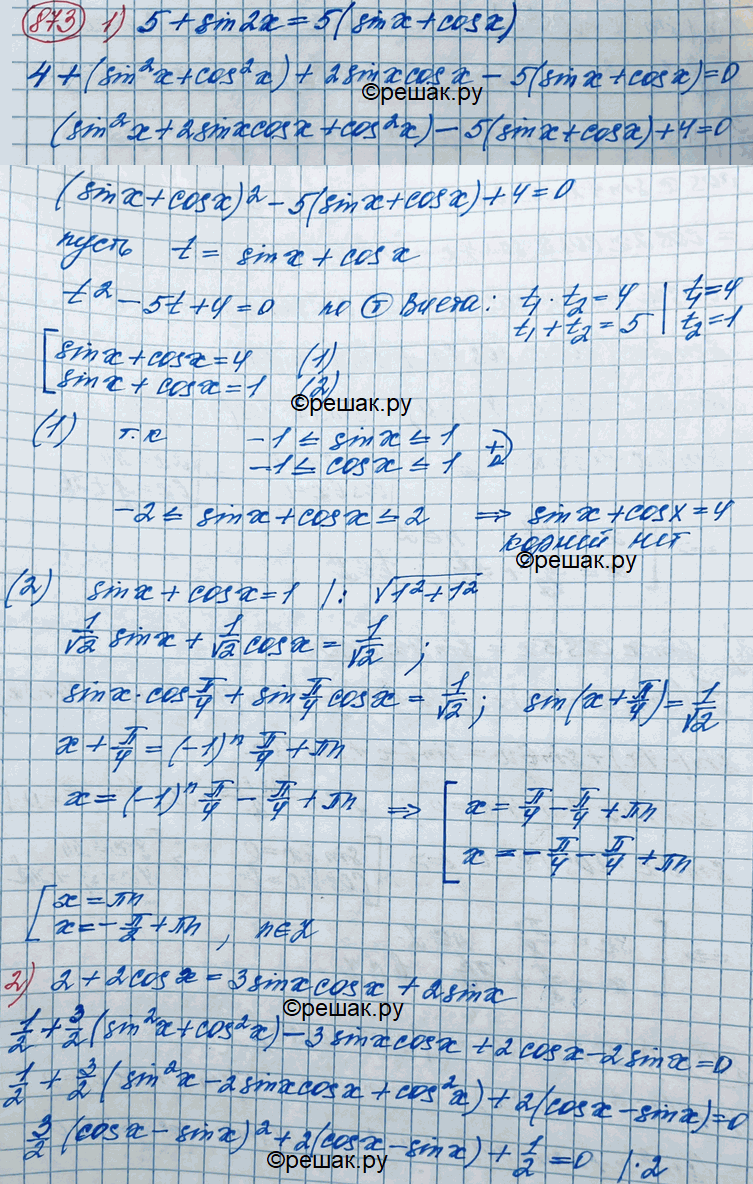 873 1) 5 + sin2x = 5(sinx + cosx)
4 + (sin²x + cos²x) + 2sinxcosx − 5(sinx + cosx) = 0
©решак.ру
(sin²x + 2sinxcosx + cos²x) − 5(sinx + cosx) + 4 = 0
(sinx + cosx)² − 5(sinx + cosx) + 4 = 0
пусть t = sinx + cosx
t² − 5t + 4 = 0 по Ⓣ Виета: t₁ · t₂ = 4 | t₁ = 4
t₁ + t₂ = 5 | t₂ = 1
[ sinx + cosx = 4 (1)
sinx + cosx = 1 (2)
©решак.ру
(1) т.к −1 ≤ sinx ≤ 1 (+)
−1 ≤ cosx ≤ 1
−2 ≤ sinx + cosx ≤ 2 ⇒ sinx + cosx = 4
корней нет
©решак.ру
(2) sinx + cosx = 1 |: √1² + 1²
1/√2 sinx + 1/√2 cosx = 1/√2 ;
sinx · cos π/4 + sin π/4 cosx = 1/√2 ; sin(x + π/4) = 1/√2
x + π/4 = (−1)ⁿ π/4 + πn
x = (−1)ⁿ π/4 − π/4 + πn ⇒ [ x = π/4 − π/4 + πn
x = − π/4 − π/4 + πn
[ x = πn
x = − π/2 + πn , n∈Z
2) 2 + 2cosx = 3sinxcosx + 2sinx
©решак.ру
1/2 + 3/2 (sin²x + cos²x) − 3sinxcosx + 2cosx − 2sinx = 0
1/2 + 3/2 (sin²x − 2sinxcosx + cos²x) + 2(cosx − sinx) = 0
3/2 (cosx − sinx)² + 2(cosx − sinx) + 1/2 = 0 | · 2
©решак.ру